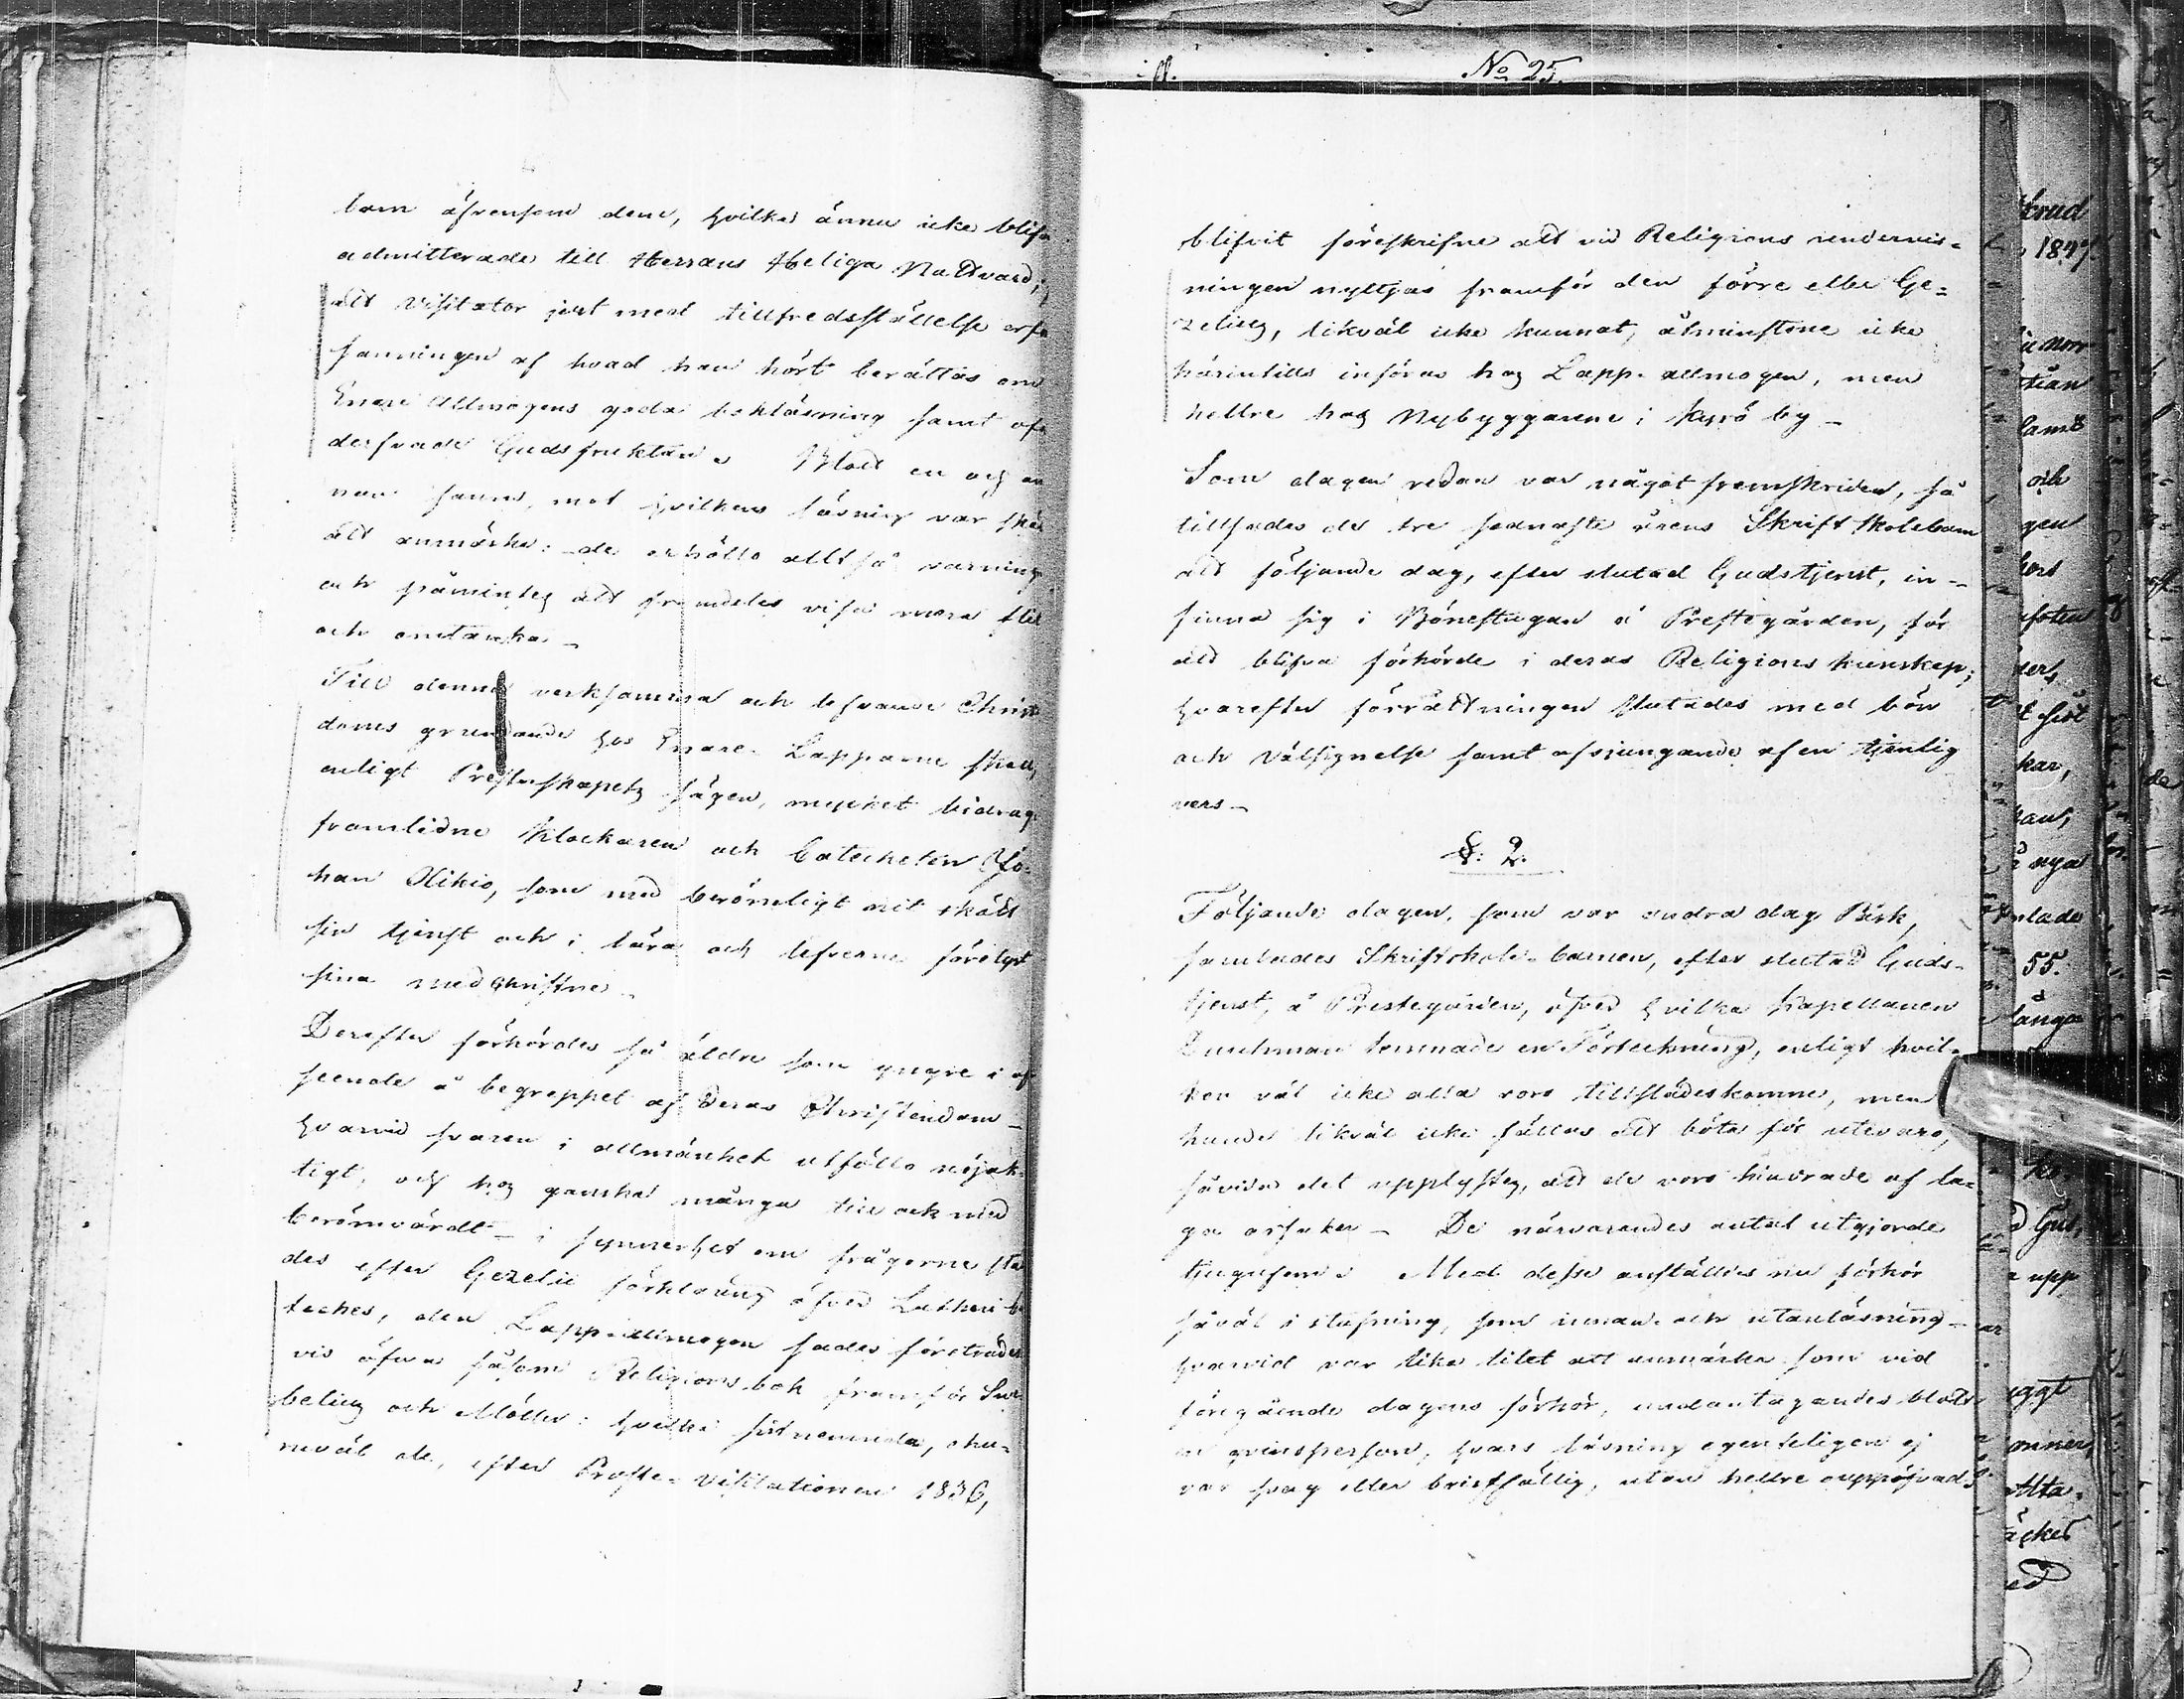 barn äfvensom dem, hvilka ännu icke blifv
admitterade till Herrans Heliga Nattvard;
att Visitator just med tillfredsställelse erfa
sanningen af hvad han hört berättas om
Enare Allmogens goda bokläsning samt
Gudsfruktan. Blott en och an
nan fanns, mot hvilkens läsning var skäl
att anmärka: de erhöllo alltså varning
och påmintes att framdeles visa mera flit
och omtanka –
Till denna verksamma och lefvande Christ
doms grundande hos Enare Lapparne skall,
enligt Presterskapets sägen, mycket bidrag
framlidne Klockaren och Catecheten Jo-
han Kikio, som med berömligt nit skött
sin tjenst och i lära och lefverne förelyst
sina medchristne –
Derefter förhördes så äldre som yngre i af
seende å begreppet af deras Christendom –
hvarvid svaren i allmänhet utföllo nöjak-
tigt, och hos ganska många till och med
berömvärdt – i synnerhet om frågorne stä
des efter Gezelii förklaring öfver Lutheri
teches, den Lapp-allmogen hades företrädes
vis öfva såsom Religions bok framför Sve
belius och Möller: hvilka sistnemnda, ehu-
ruväl de, efter Prosts-Visitationen 1836,
No 25.
blifvit föreskrifne att vid Religions undervis-
ningen nyttjas framför den förre eller Ge-
zelius, likväl icke kunnat, åtminstone icke
härintills införas hos Lapp-allmogen, men
hellre hos Nybyggarene i Kyrö by –
Som dagen redan var något framskriden, så
tillsades de tre sednaste årens Skriftskolebarn
att följande dag, efter slutad Gudstjenst, in-
finna sig i Bönestugan å Prestegården, för
att blifva förhörde i deras Religions kunskap;
hvarefter förrättningen slutades med bön
och Välsignelse samt afsjungande af en tjenlig
vers –
§. 2.
Följande dagen, som var andra dag Påsk,
samlades Skriftskole-barnen, efter slutad Guds-
tjenst, å Prestegården, öfver hvilka Kapellanen
Durchman lemnade en Förteckning, enligt hvil-
ken väl icke alla voro tillstädeskomne, men
kunde likväl icke fällas att böta för utevaro,
såvida det upplystes, att de voro hindrade af la-
ga orsaker – De närvarandes antal utgjorde
tjugufem. Med desse anställdes nu förhör
såväl i stafning, som innan- och utanläsning –
hvarvid var lika litet att anmärka som vid
föregående dagens förhör, undantagandes blott
en qvinsperson, hvars läsning egenteligen ej
var svag eller bristfällig, utan hellre ouppöfvad
1847.
och
gen
kar,
nya
55.
långa
upp